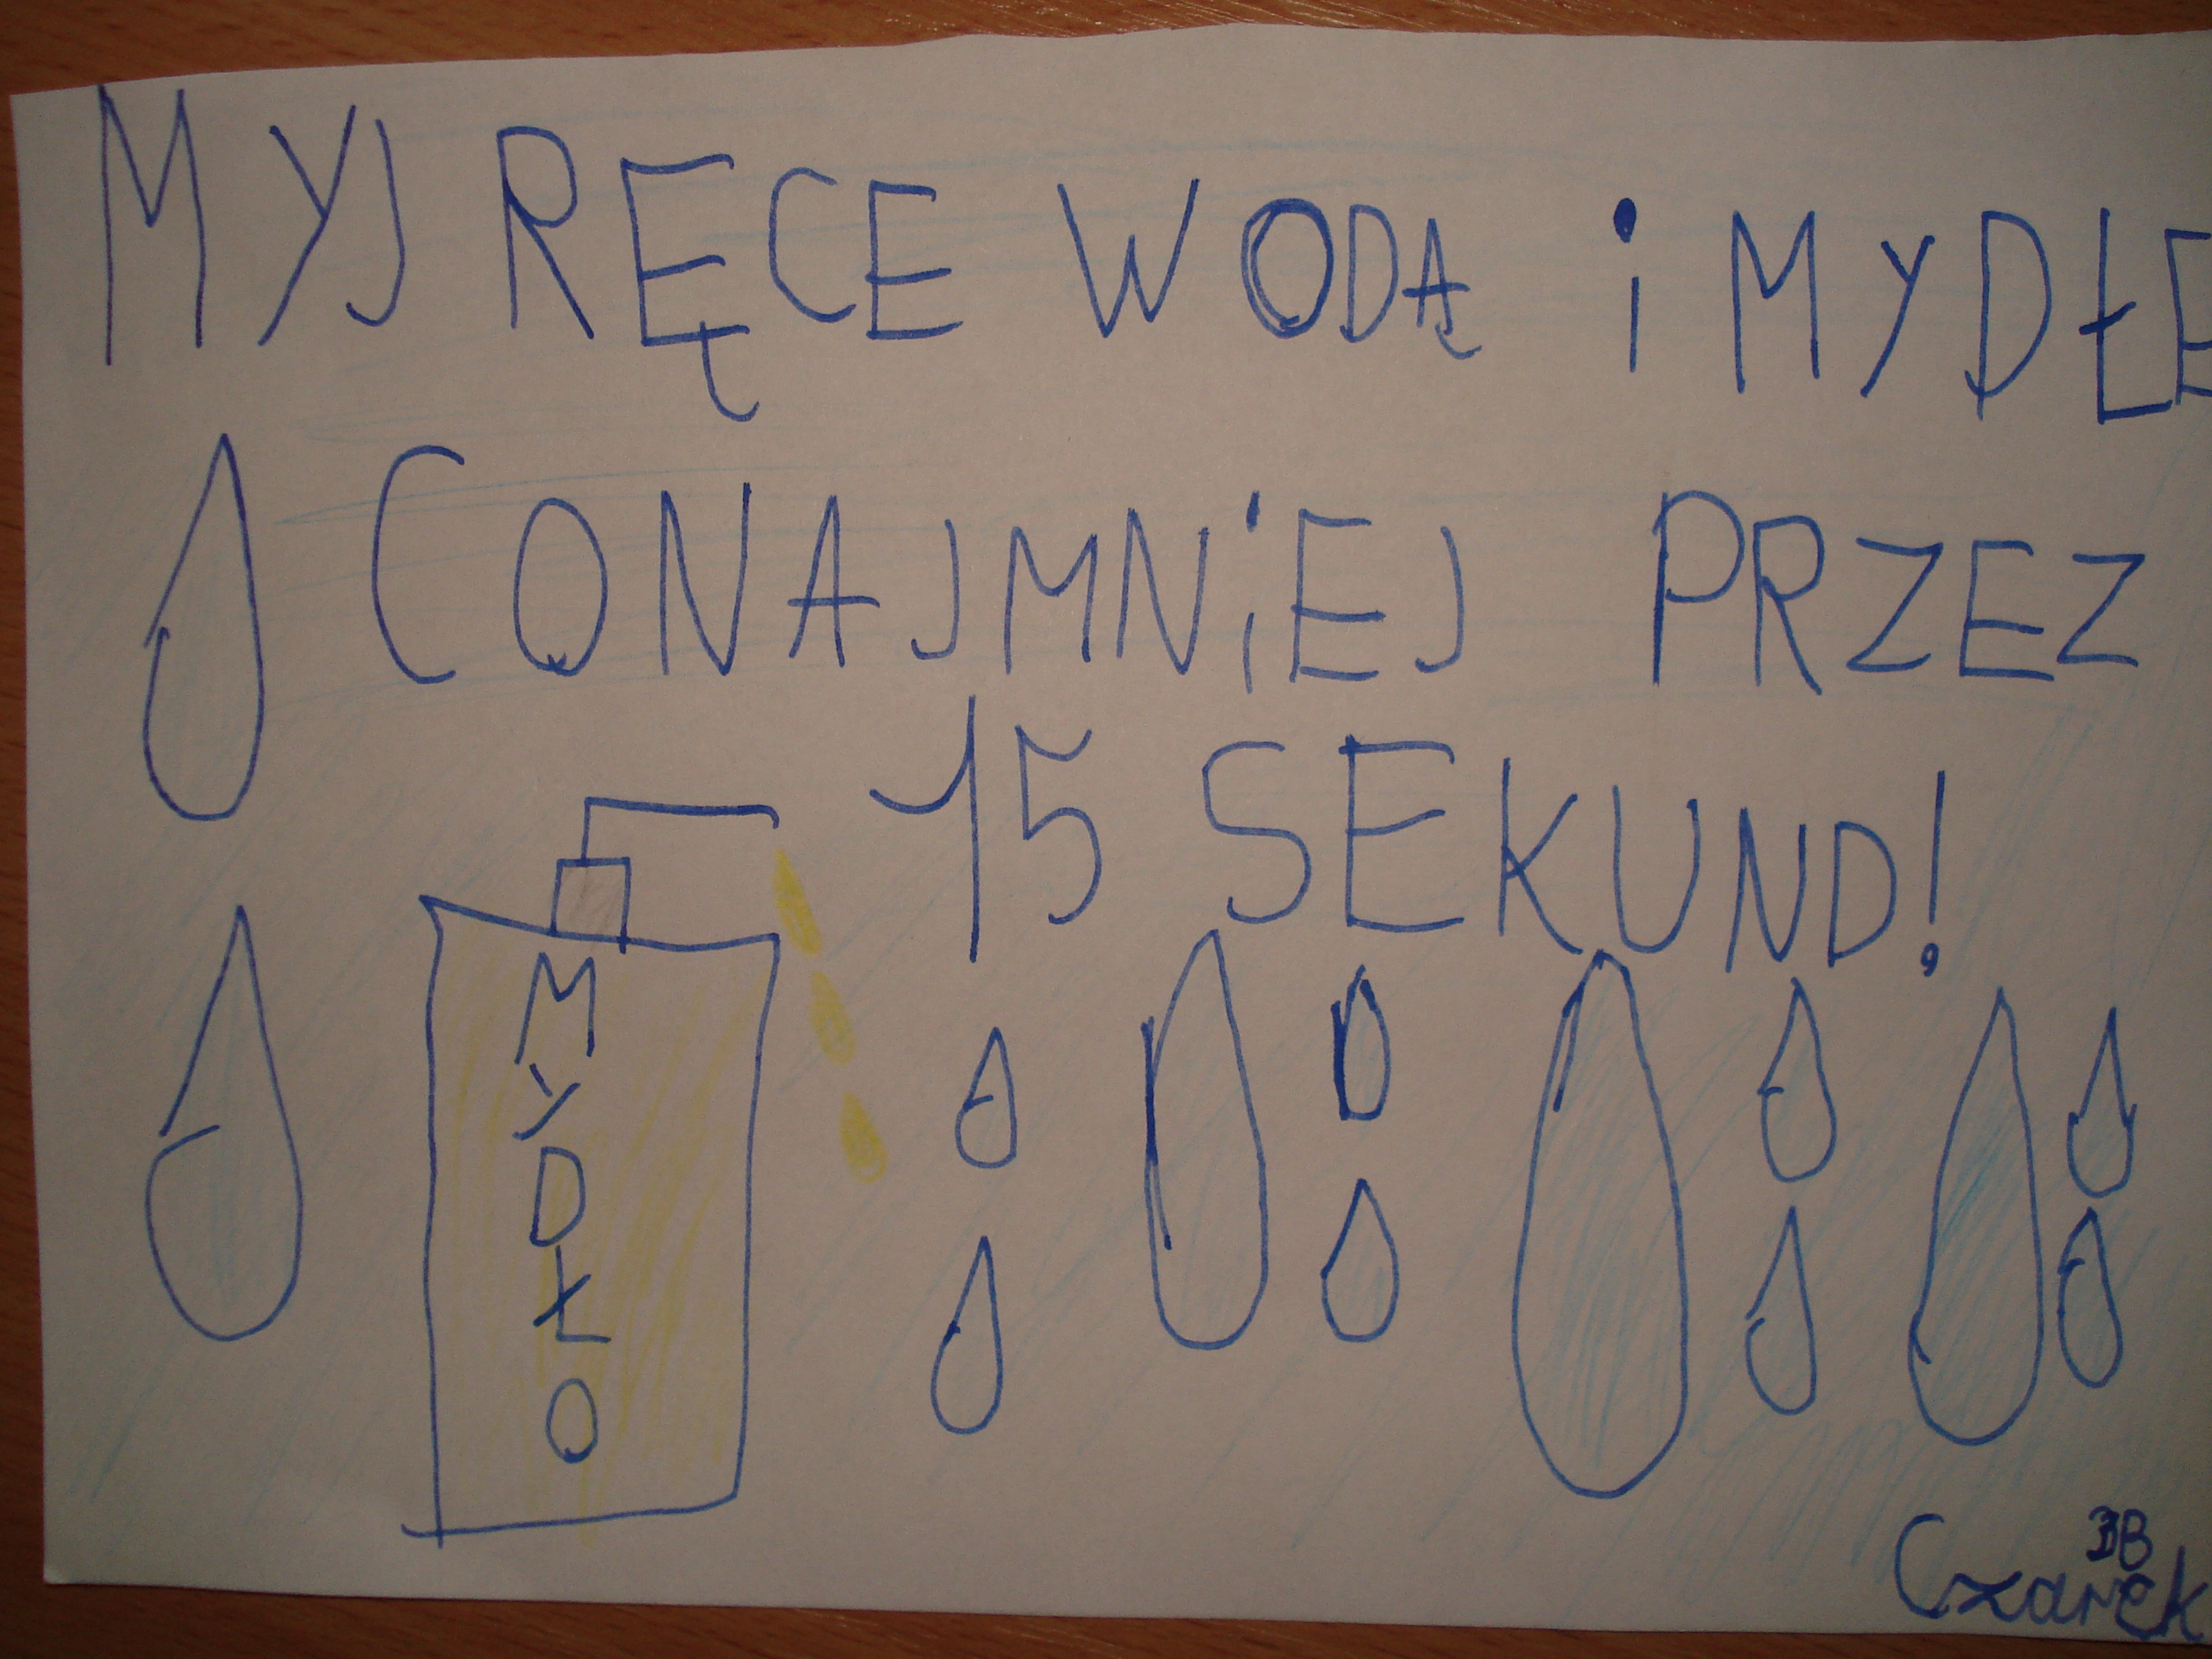 MYJ RĘCE WODĄ i MYDŁE
CONAJMNiEJ PRZEZ
15 SEKUND!
MYDŁO
Czarek